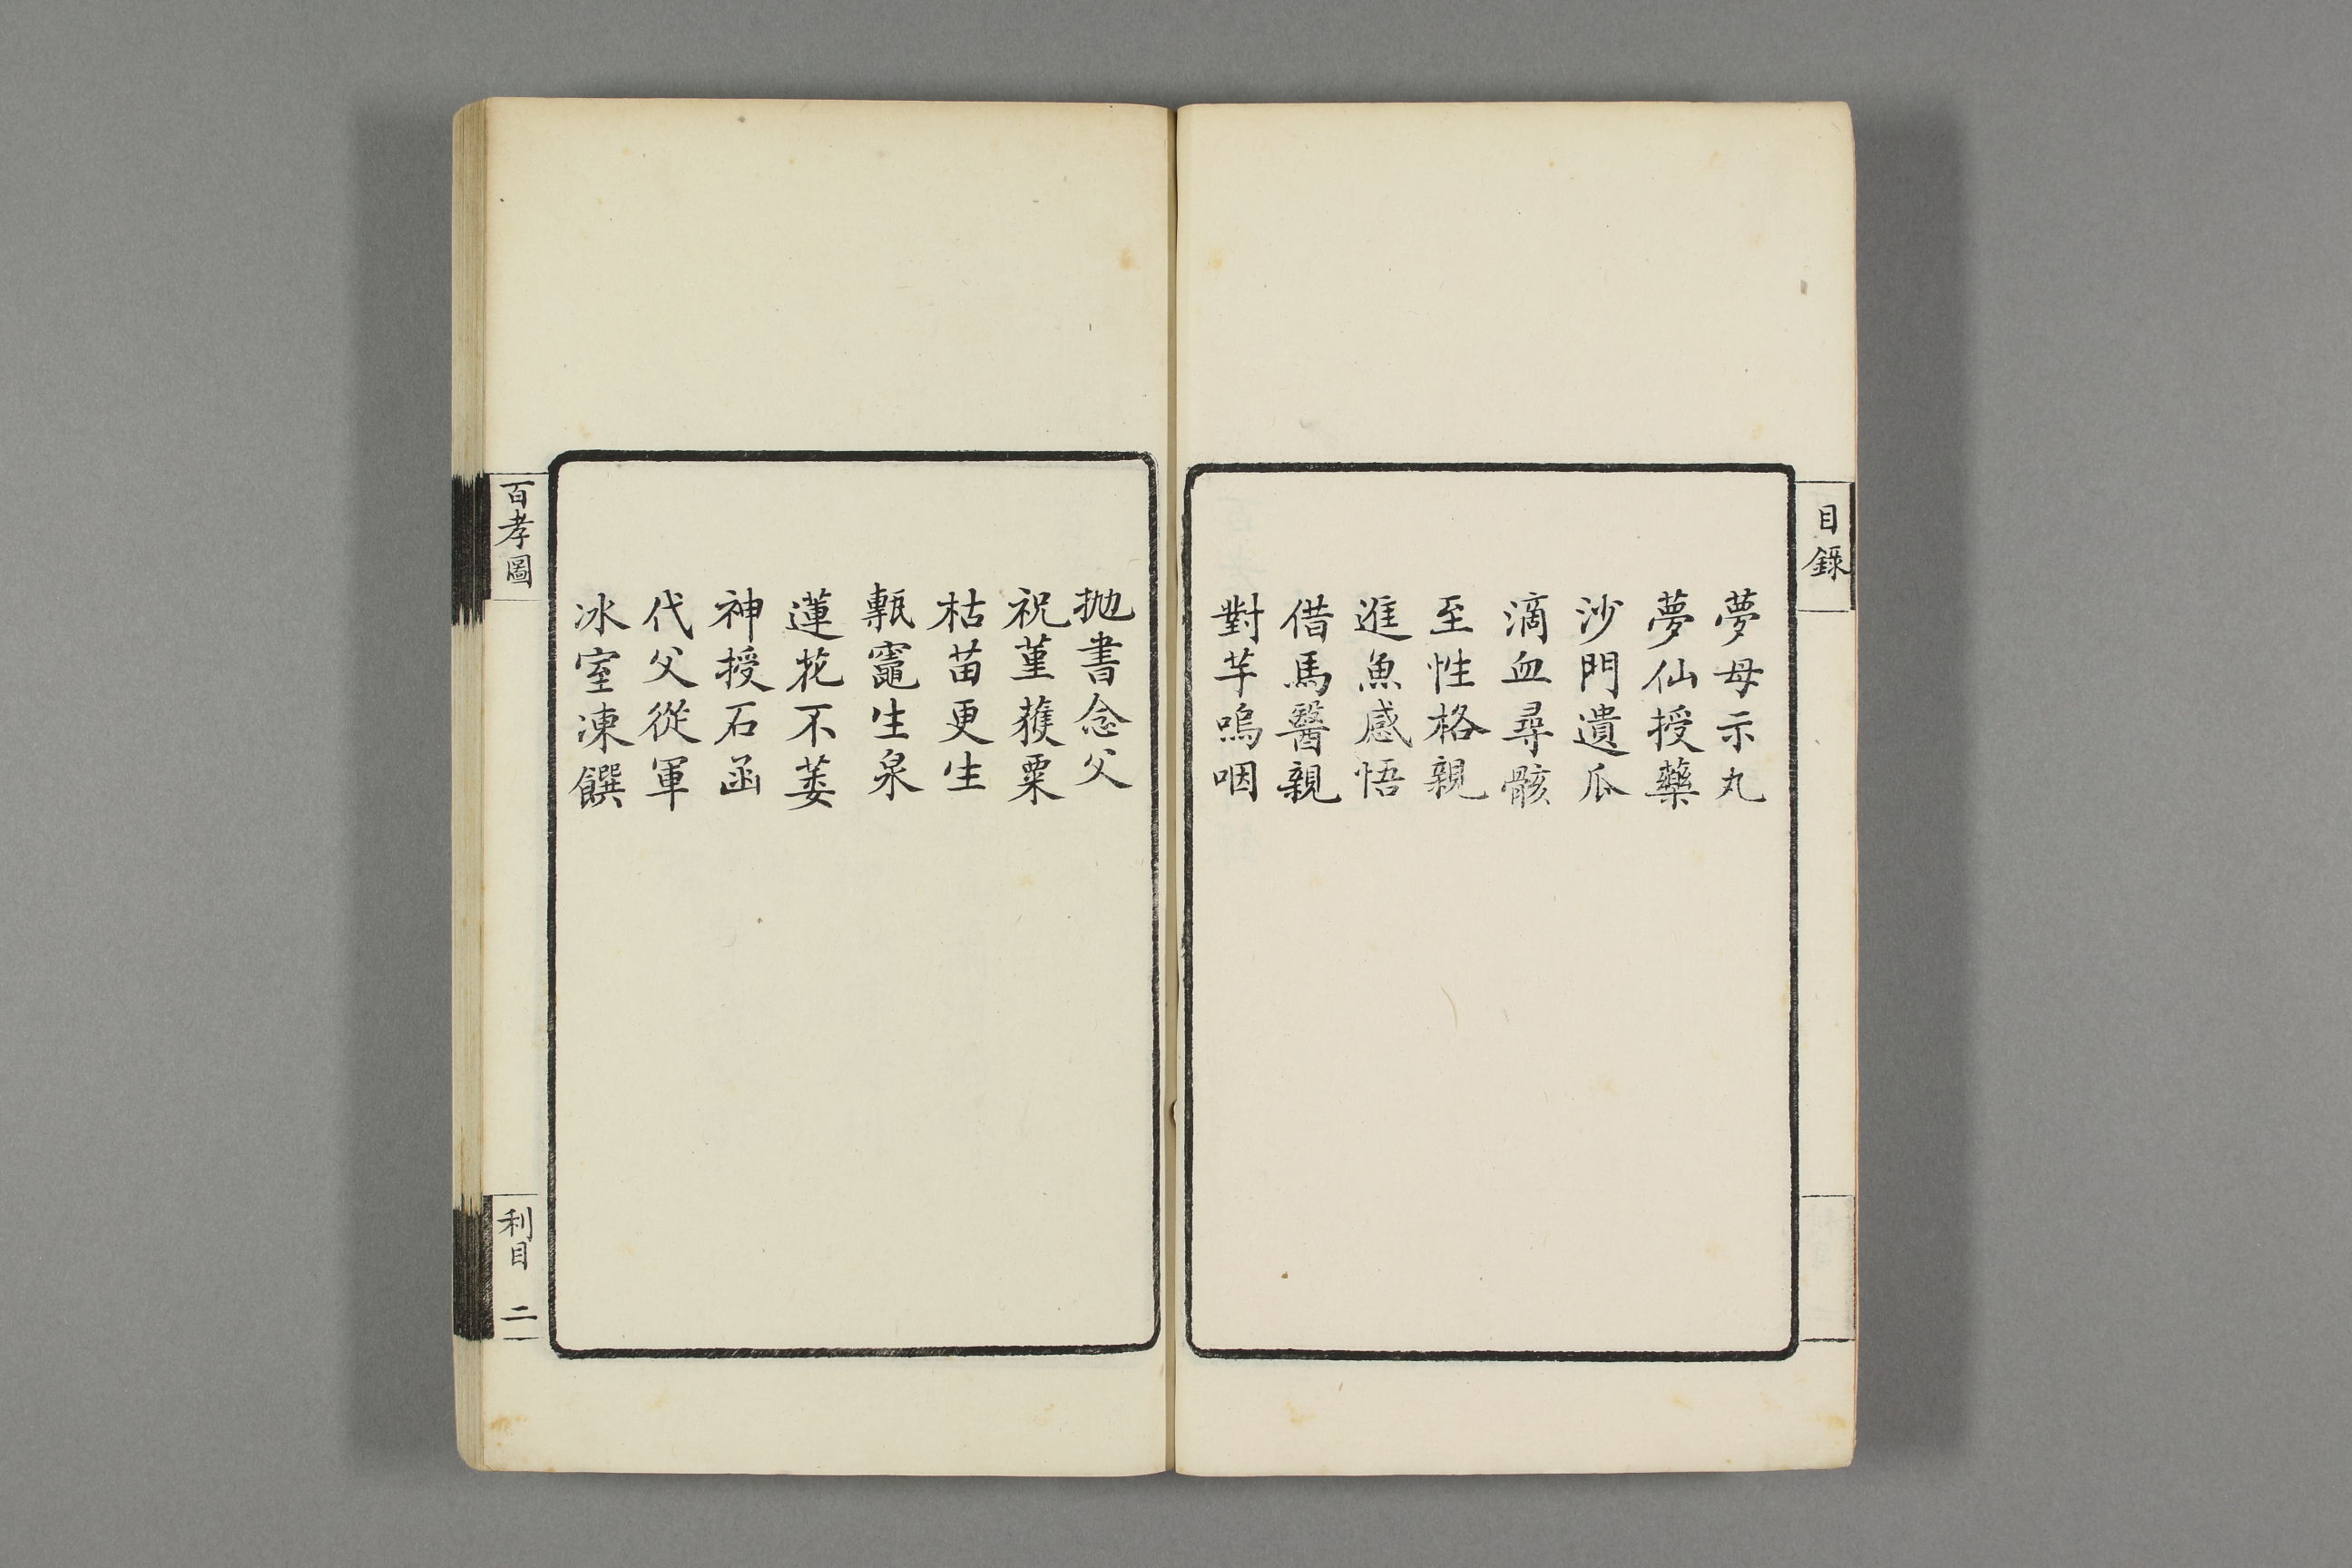 目錄
夢母示丸
夢仙授藥
沙門遺瓜
滴血尋骸
至性格親
進魚感悟
借馬醫親
對芊嗚咽
拋書念父
祝堇獲粟
枯苗更生
甎竈生泉
蓮花不萎
神授石函
代父從軍
冰室凍饌
百孝圖
利目 二